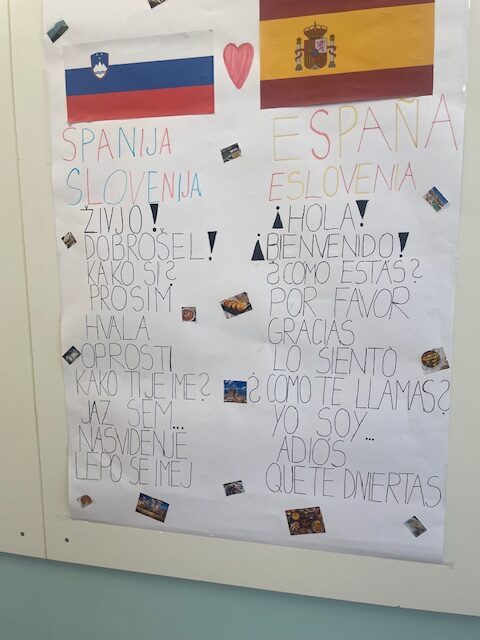 ŠPANIJA
SLOVENIJA
ŽIVJO!
DOBROŠEL!
KAKO SI?
PROSIM
HVALA
OPROSTI
KAKO TI JE IME?
JAZ SEM...
NASVIDENJE
LEPO SE IMEJ
ESPAÑA
ESLOVENIA
¡HOLA!
¡BIENVENIDO!
¿CÓMO ESTÁS?
POR FAVOR
GRACIAS
LO SIENTO
¿CÓMO TE LLAMAS?
YO SOY...
ADIÓS
QUE TE DIVIERTAS